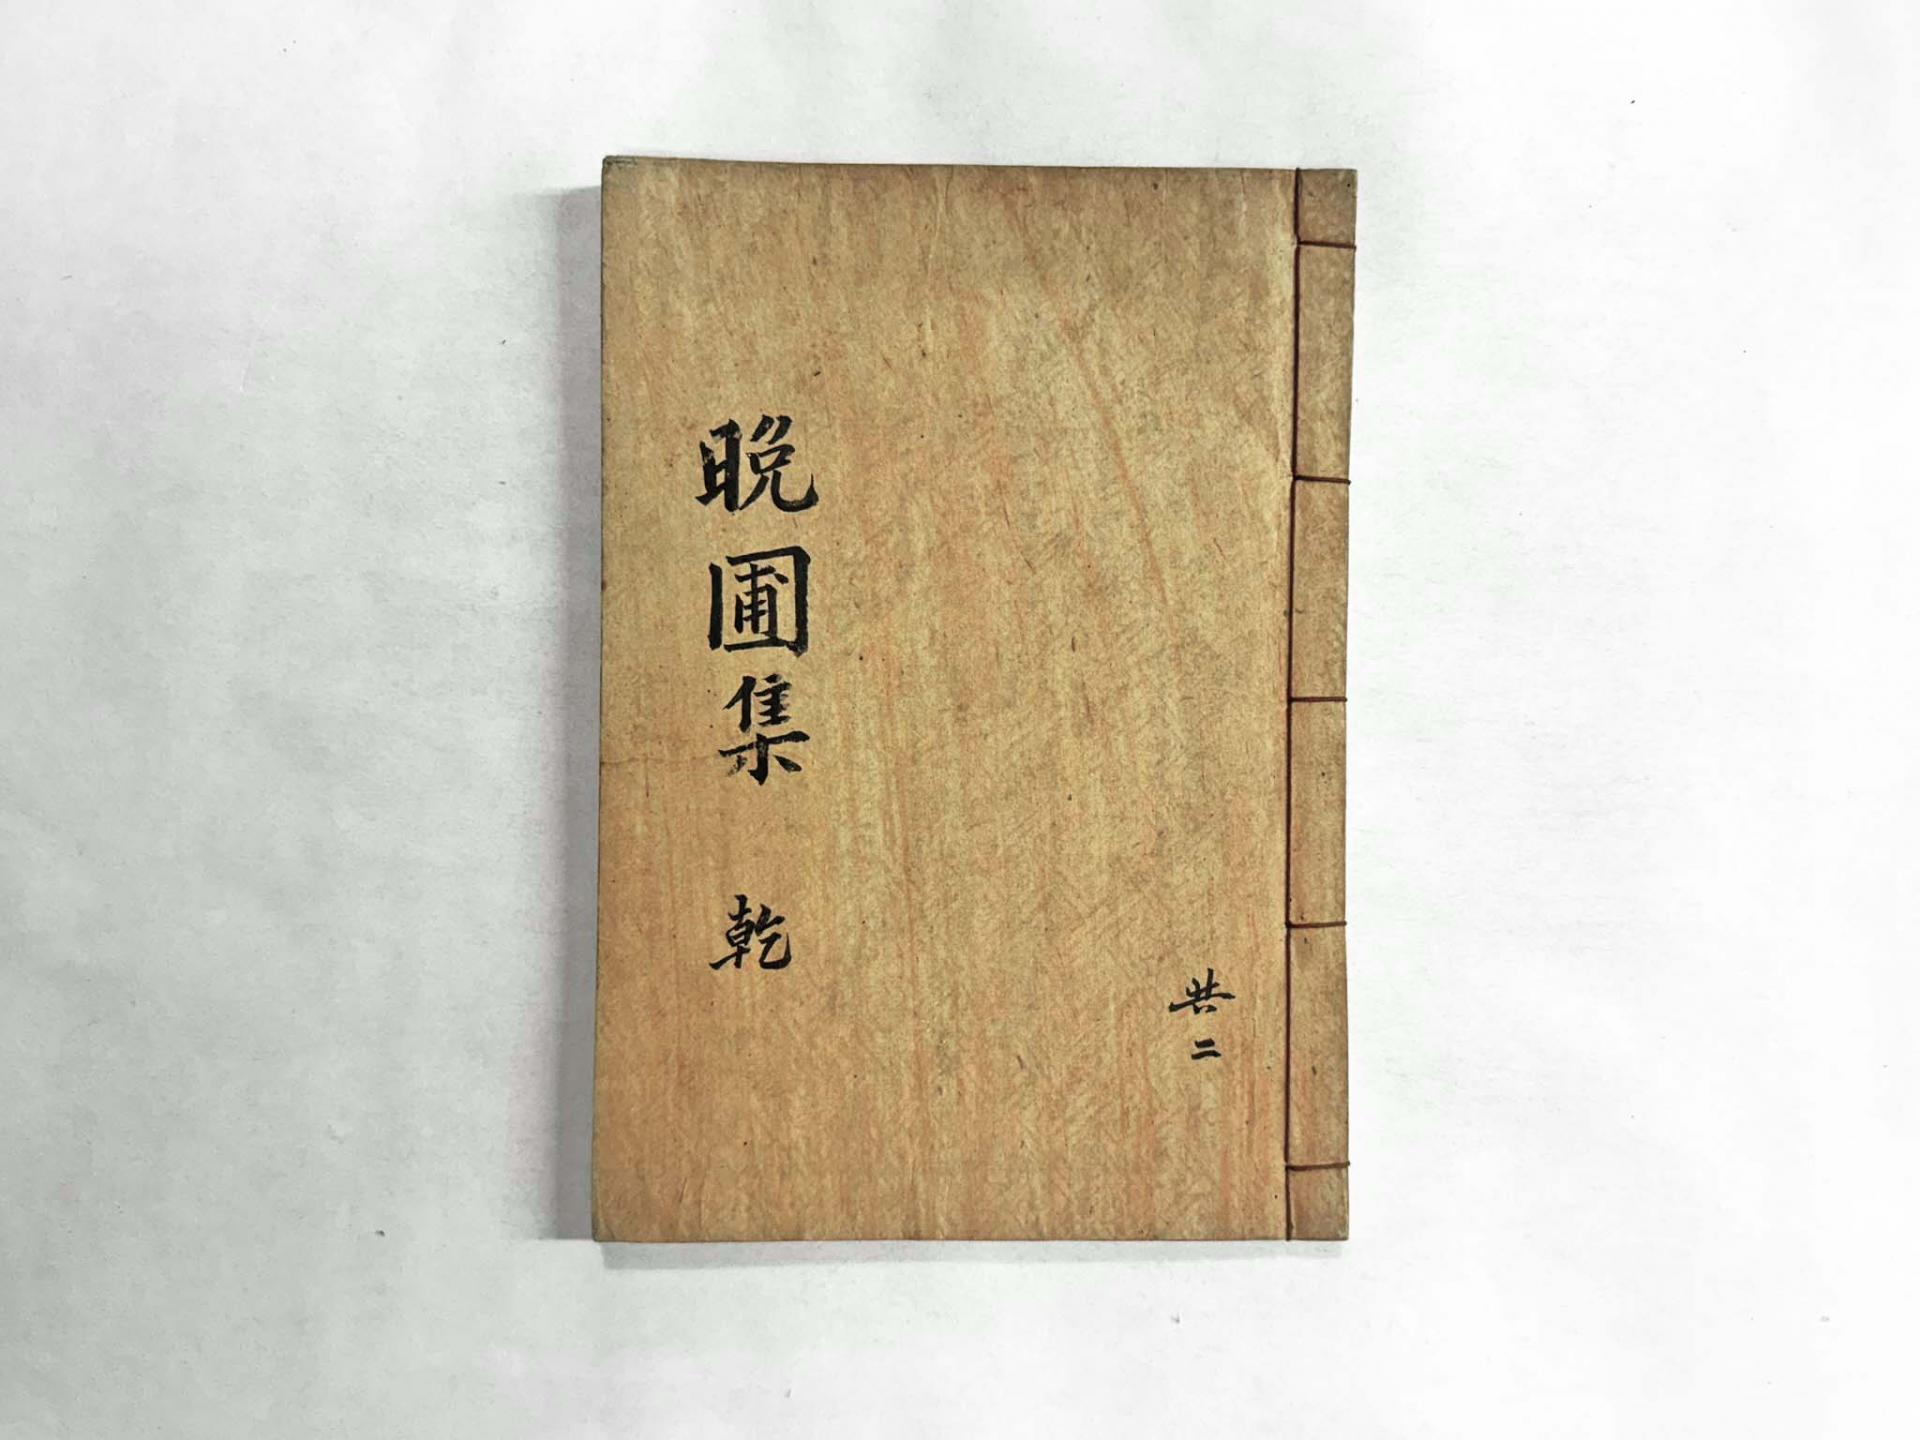 晩圃集 乾
共二